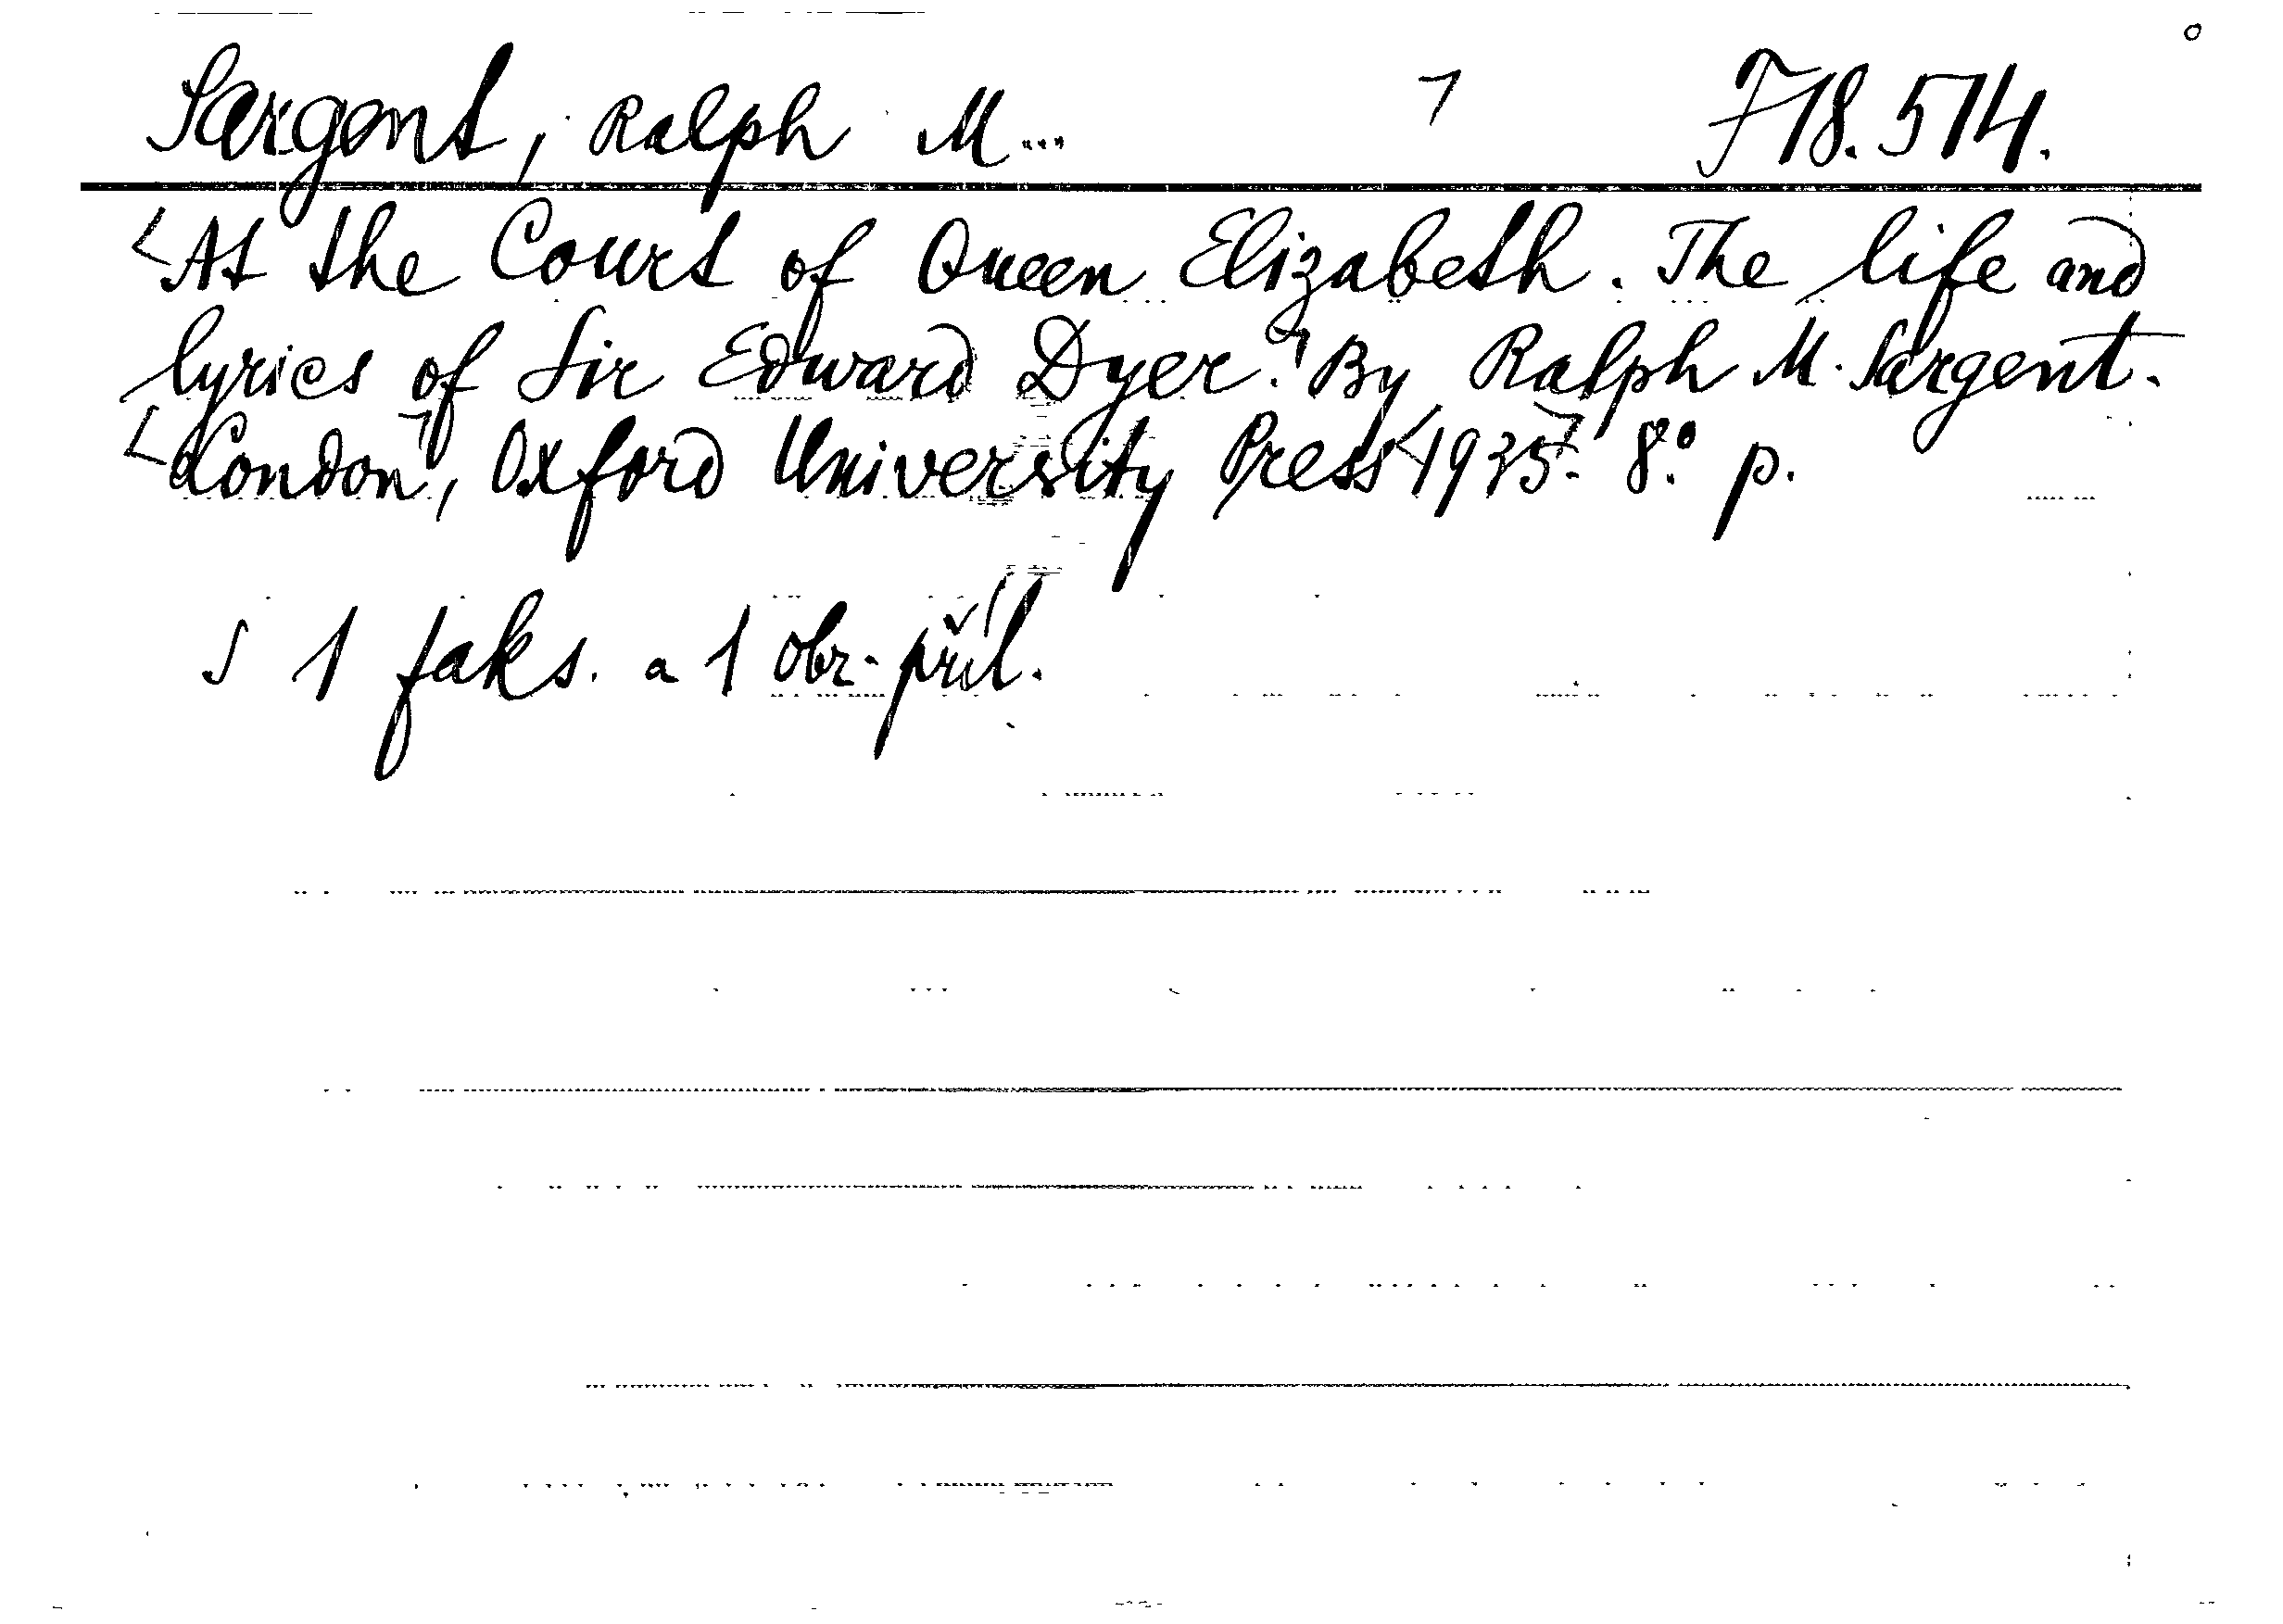 Sargent, Ralph M... F 18.574.
At the Court of Queen Elizabeth. The life and
lyrics of Sir Edward Dyer. By Ralph M. Sargent.
London, Oxford University Press 1935. 8° p.
S 1 faks. a 1 obr. příl.